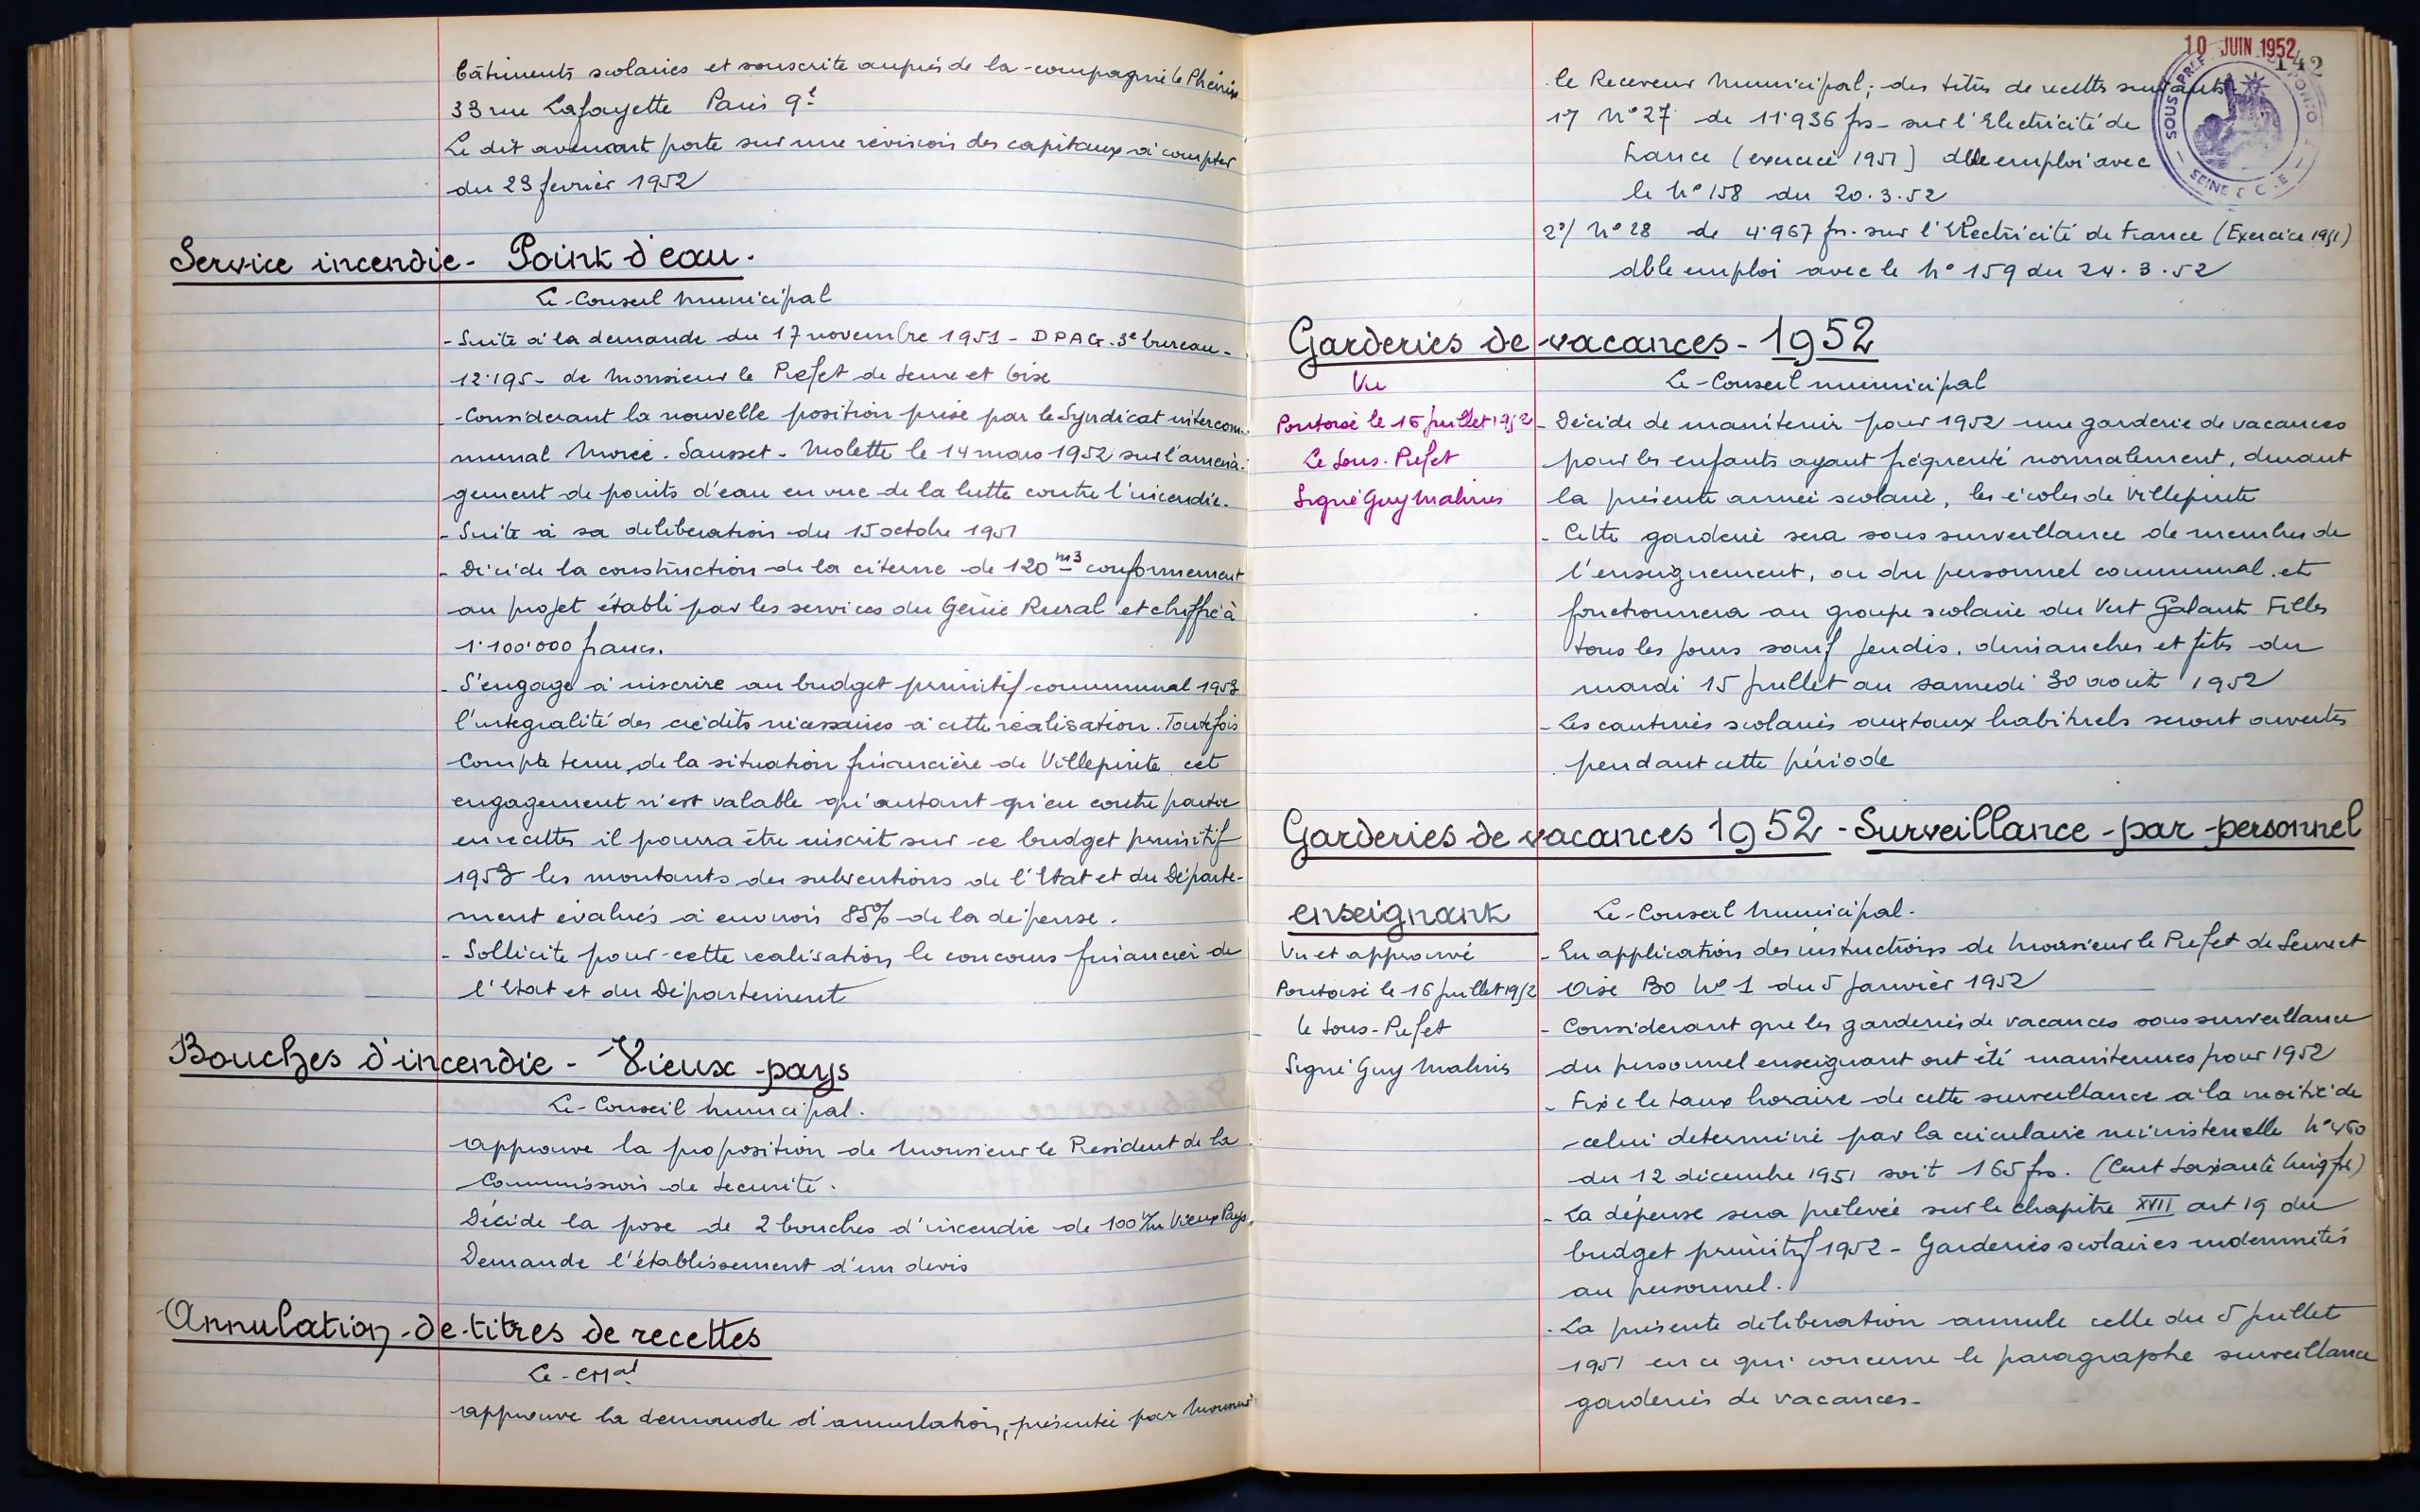 bâtiments scolaires et souscrite auprès de la compagnie le Phénix
33 rue Lafayette Paris 9e
Le dit avenant porte sur une révision des capitaux à compter
du 23 fevrier 1952
Service incendie - Point d'eau.
Le Conseil Municipal
- Suite à la demande du 17 novembre 1951 - DPAG. 3e bureau -
12.195 - de Monsieur le Prefet de Seine et Oise
- Considerant la nouvelle position prise par le Syndicat intercom-
munal Morée. Sausset - Molette le 14 mars 1952 sur l'aména-
gement de points d'eau en vue de la lutte contre l'incendie.
- Suite à sa deliberation du 15 octobre 1951
- Décide la construction de la citerne de 120 m3 conformement
au projet établi par les services du Génie Rural et chiffré à
1.100.000 francs.
- S'engage à inscrire au budget primitif communal 1953
l'integralité des crédits nécessaires à cette réalisation. Toutefois
compte tenu, de la situation financière de Villepinte cet
engagement n'est valable qu'autant qu'en contre partie
en recettes il pourra être inscrit sur ce budget primitif
1953 les montants des subventions de l'Etat et du Départe-
ment évalués à environ 85% de la dépense.
- Sollicite pour cette realisation le concours financier de
l'Etat et du Département
Bouches d'incendie - Vieux pays
Le Conseil Municipal.
approuve la proposition de Monsieur le President de la
Commission de Securité.
Décide la pose de 2 bouches d'incendie de 100 m/m Vieux Pays.
Demande l'établissement d'un devis
Annulation de titres de recettes
Le CMal
approuve la demande d'annulation, présentée par Monsieur
10 JUIN 1952
142
SOUS PREF
SEINE
le Receveur Municipal, des titres de recettes suivants
1°/ N° 27 de 11.936 frs - sur l'Electricité de
France (exercice 1951) dble emploi avec
le N° 158 du 20.3.52
2°/ N° 28 de 4.967 frs. sur l'Electricité de France (Exercice 1951)
dble emploi avec le N° 159 du 24.3.52
Garderies de vacances - 1952
Vu
Pontoise le 16 juillet 1952
Le Sous-Préfet
Signé Guy Malines
Le Conseil municipal
- Décide de maintenir pour 1952 une garderie de vacances
pour les enfants ayant fréquenté normalement, durant
la présente année scolaire, les écoles de Villepinte
- Cette garderie sera sous surveillance de membres de
l'enseignement, ou du personnel communal et
fonctionnera au groupe scolaire du Vert Galant Filles
tous les jours sauf jeudis, dimanches et fêtes du
mardi 15 juillet au samedi 30 août 1952
- Les cantines scolaires aux taux habituels seront ouvertes
pendant cette période
Garderies de vacances 1952 - Surveillance par personnel
enseignant
Vu et approuvé
Pontoise le 16 juillet 1952
le Sous-Préfet
Signé Guy Malines
Le Conseil Municipal.
- En application des instructions de Monsieur le Prefet de Seine et
Oise BO N° 1 du 5 Janvier 1952
- Considerant que les garderies de vacances sous surveillance
du personnel enseignant ont été maintenues pour 1952
- Fixe le taux horaire de cette surveillance à la moitié de
celui determiné par la circulaire ministerielle N° 460
du 12 décembre 1951 soit 165 frs. (Cent soixante cinq frs)
- La dépense sera prélevée sur le chapitre XVII art 19 du
budget primitif 1952 - Garderies scolaires indemnités
au personnel.
- La présente déliberation annule celle du 5 juillet
1951 en ce qui concerne le paragraphe surveillance
garderies de vacances -